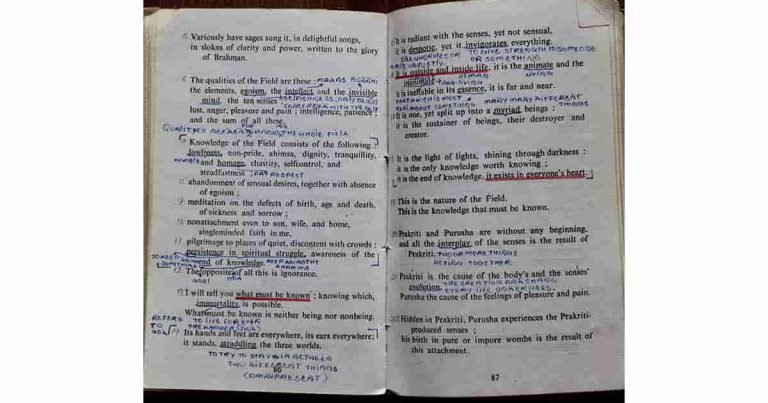 Variously have sages sung it, in delightful songs,
in slokas of clarity and power, written to the glory
of Brahman.
The qualities of the Field are these
the elements, egoism, the intellect, and the invisible
mind, the ten senses
lust, anger, pleasure and pain; intelligence, patience
and the sum of all these
Knowledge of the Field consists of the following
lowliness, non-pride, ahimsa, dignity, tranquillity,
HUMBLE and homage, chastity, selfcontrol, and
steadfastness; RESPECT
abandonment of sensual desires, together with absence
of egoism;
meditation on the defects of birth, age and death,
of sickness and sorrow;
nonattachment even to son, wife, and home,
singleminded faith in me.
11 pilgrimage to places of quiet, discontent with crowds;
persistence in spiritual struggle, awareness of the
end of knowledge.
12 The opposite of all this is ignorance.
I will tell you what must be known; knowing which,
immortality is possible.
What must be known is neither being nor nonbeing.
REFERS TO LIVE FOREVER
TO
Its hands and feet are everywhere, its ears everywhere;
it stands, straddling the three worlds.
TO TRY TO STAY IN BETWEEN
TWO DIFFERENT THINGS
(OMNIPRESENT)
86
It is radiant with the senses, yet not sensual,
it is despotic, yet it invigorates everything.
TO GIVE STRENGTH TO SOMEONE
OR SOMETHING
It is outside and inside life, it is the animate and the
inanimate
it is ineffable in its essence, it is far and near.
MANY MANY DIFFERENT
THINGS
It is one, yet split up into a myriad beings;
it is the sustainer of beings, their destroyer and
creator.
It is the light of lights, shining through darkness;
it is the only knowledge worth knowing;
it is the end of knowledge, it exists in everyone's heart.
This is the nature of the Field.
This is the knowledge that must be known.
Prakriti and Purusha are without any beginning,
and all the interplay of the senses is the result of
Prakriti. TWO OR MORE THINGS
ACTING TOGETHER.
Prakriti is the cause of the body's and the senses'
evolution,
Purusha the cause of the feelings of pleasure and pain.
Hidden in Prakriti, Purusha experiences the Prakriti-
produced senses;
his birth in pure or impure wombs is the result of
this attachment.
87